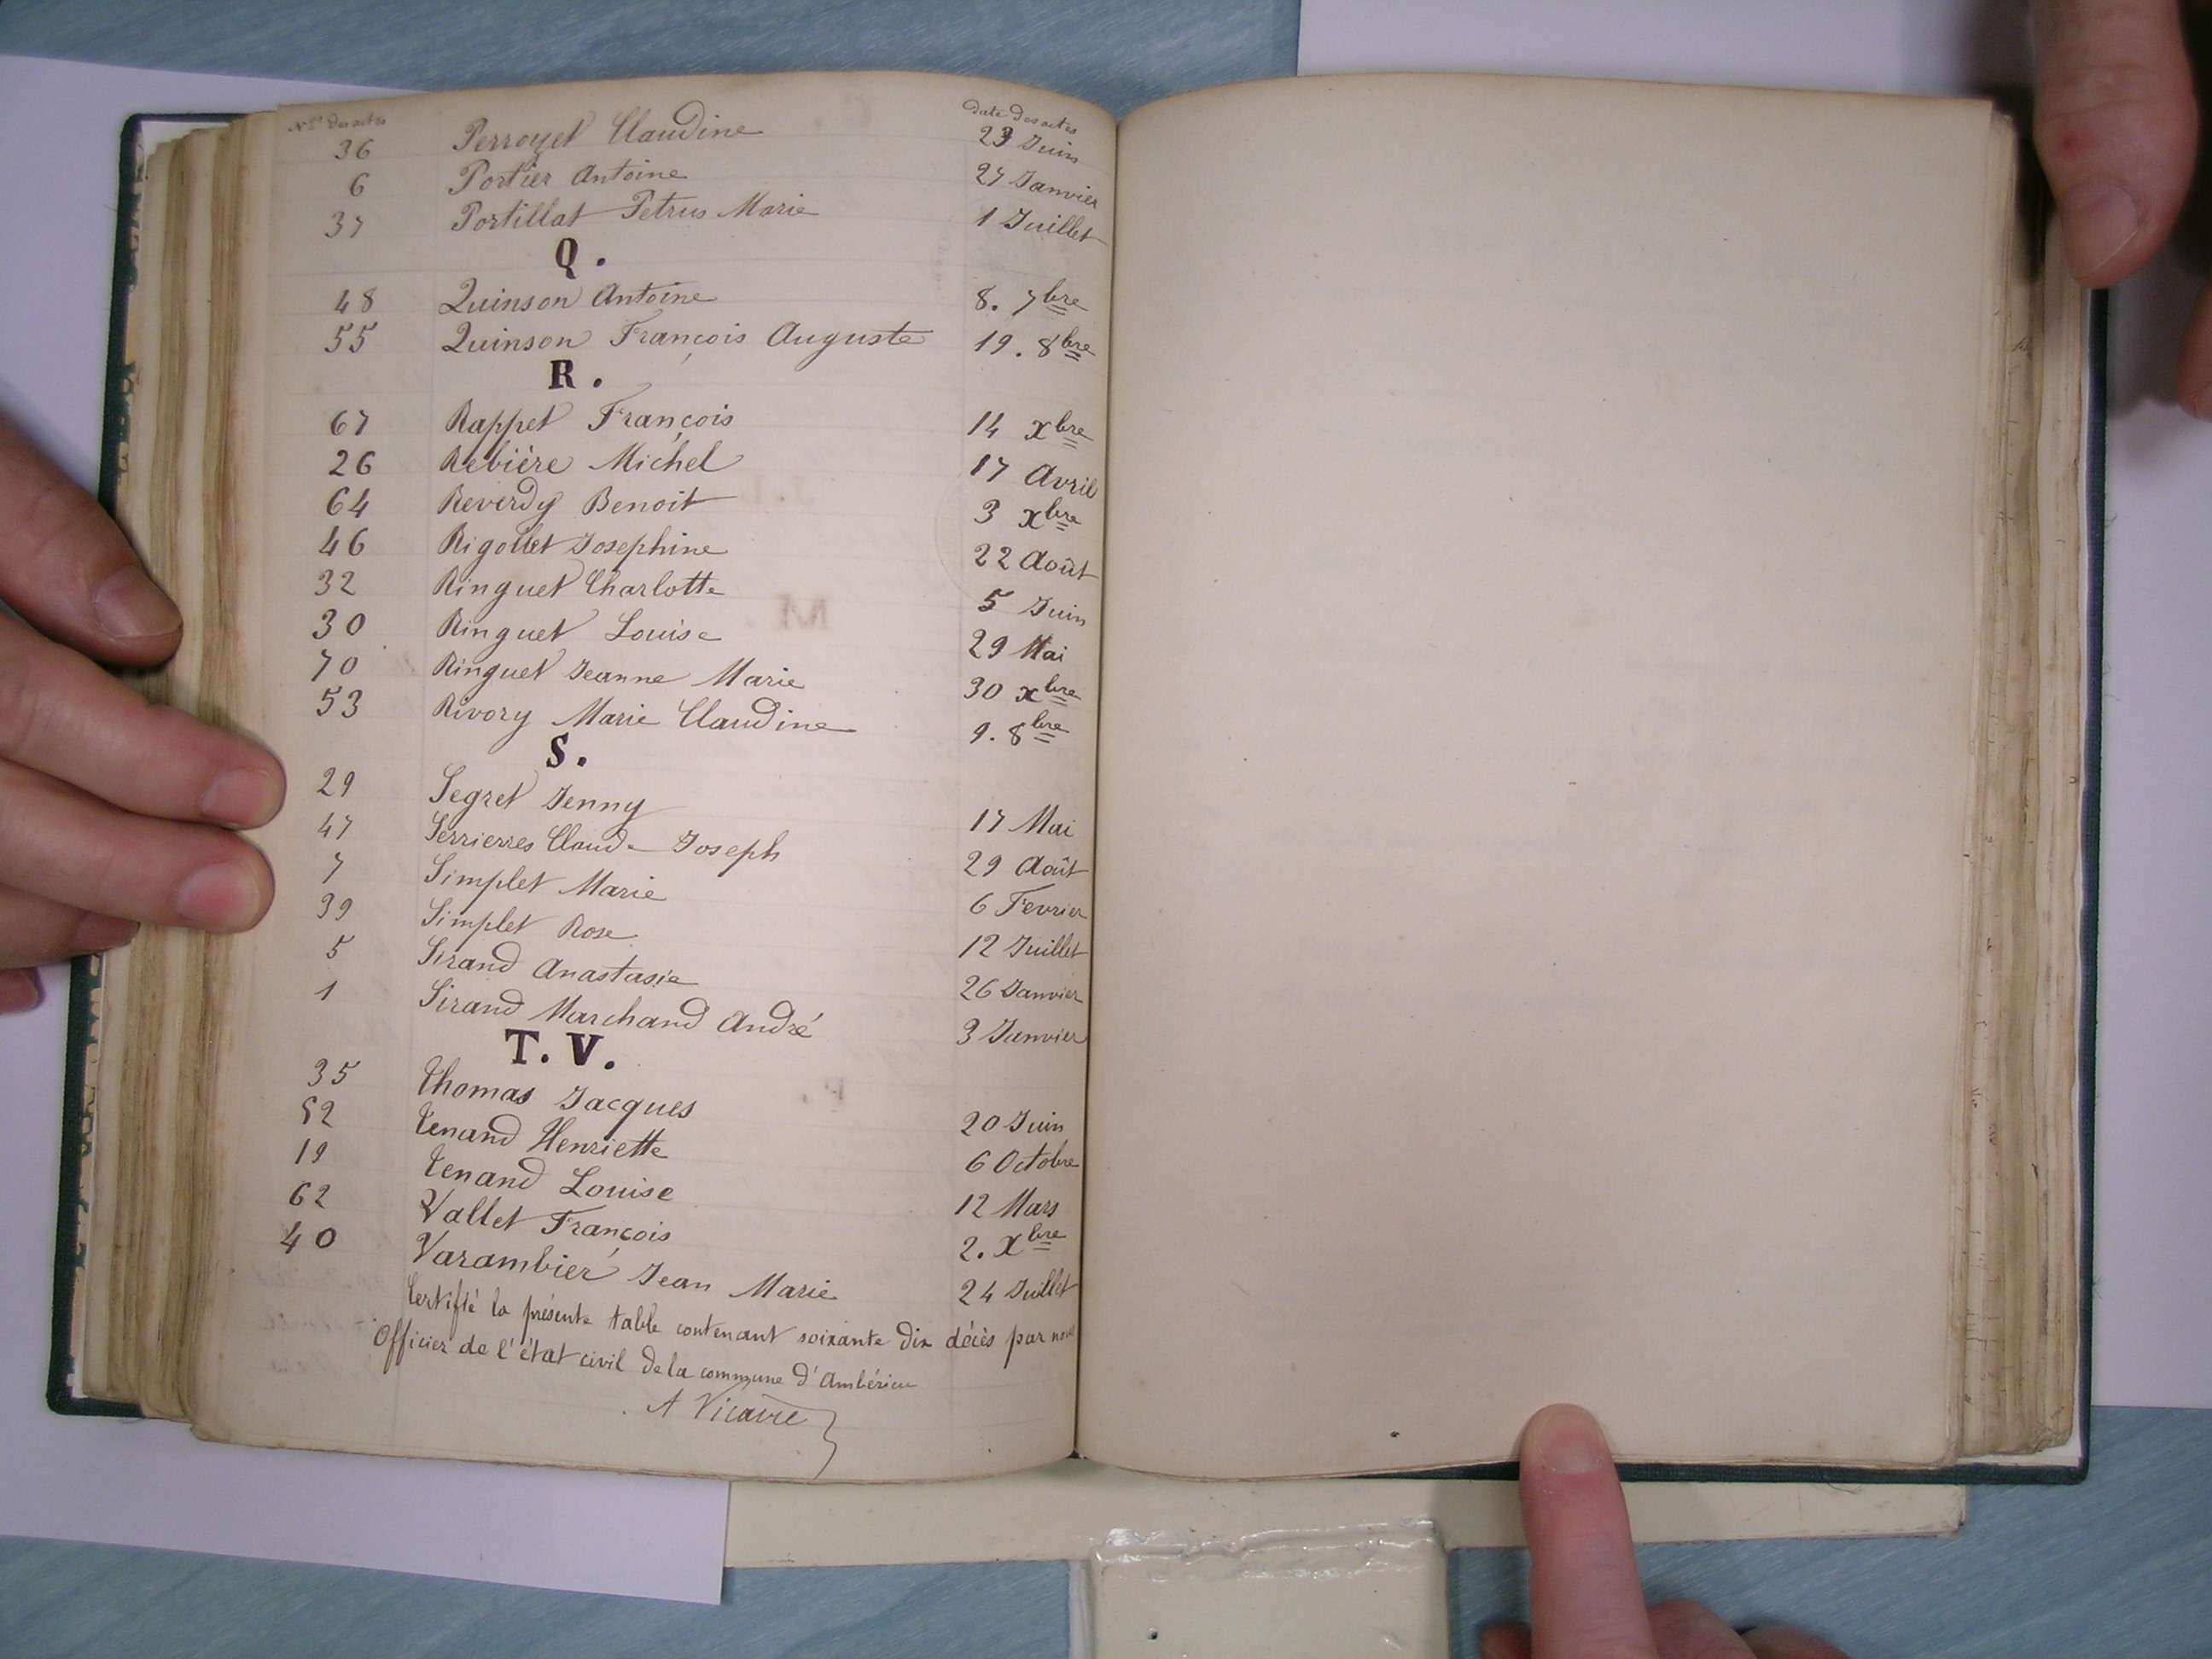 Nos des actes date des actes
36 Perroyet Claudine 23 Juin
6 Portier Antoine 27 Janvier
37 Portillat Petrus Marie 1 Juillet
Q.
48 Quinson Antoine 8. 7bre
55 Quinson François Auguste 19. 8bre
R.
67 Rappet François 14 xbre
26 Rebière Michel 17 Avril
64 Reverdy Benoit 3 xbre
46 Rigollet Josephine 22 Août
32 Ringuet Charlotte 5 Juin
30 Ringuet Louise 29 Mai
70 Ringuet Jeanne Marie 30 xbre
53 Rivory Marie Claudine 9. 8bre
S.
29 Segret Jenny 17 Mai
47 Serrierres Claude Joseph 29 Août
7 Simplet Marie 6 Fevrier
39 Simplet Rose 12 Juillet
5 Sirand Anastasie 26 Janvier
1 Sirand Marchand André 3 Janvier
T. V.
35 Thomas Jacques 20 Juin
52 Tenand Henriette 6 Octobre
19 Tenand Louise 12 Mars
62 Vallet François 2. Xbre
40 Varambier Jean Marie 24 Juillet
Certifié la présente table contenant soixante dix décès par nous
Officier de l'état civil de la commune d'Ambérieu
A Vicaire